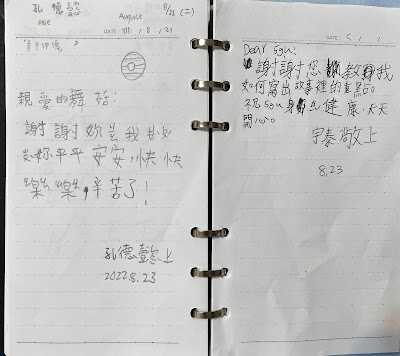 孔 德懿
8/23 (二)
August
DATE 111 / 8 / 23
親愛的舞姊:
謝謝妳
妳平平安安,快快
樂樂,辛苦了!
孔德懿上
2022.8.23
DATE
Dear
謝謝您 教 我
如何寫出故事裡的重點。
祝 身 健康,天天
開心。
宇泰敬上
8.23